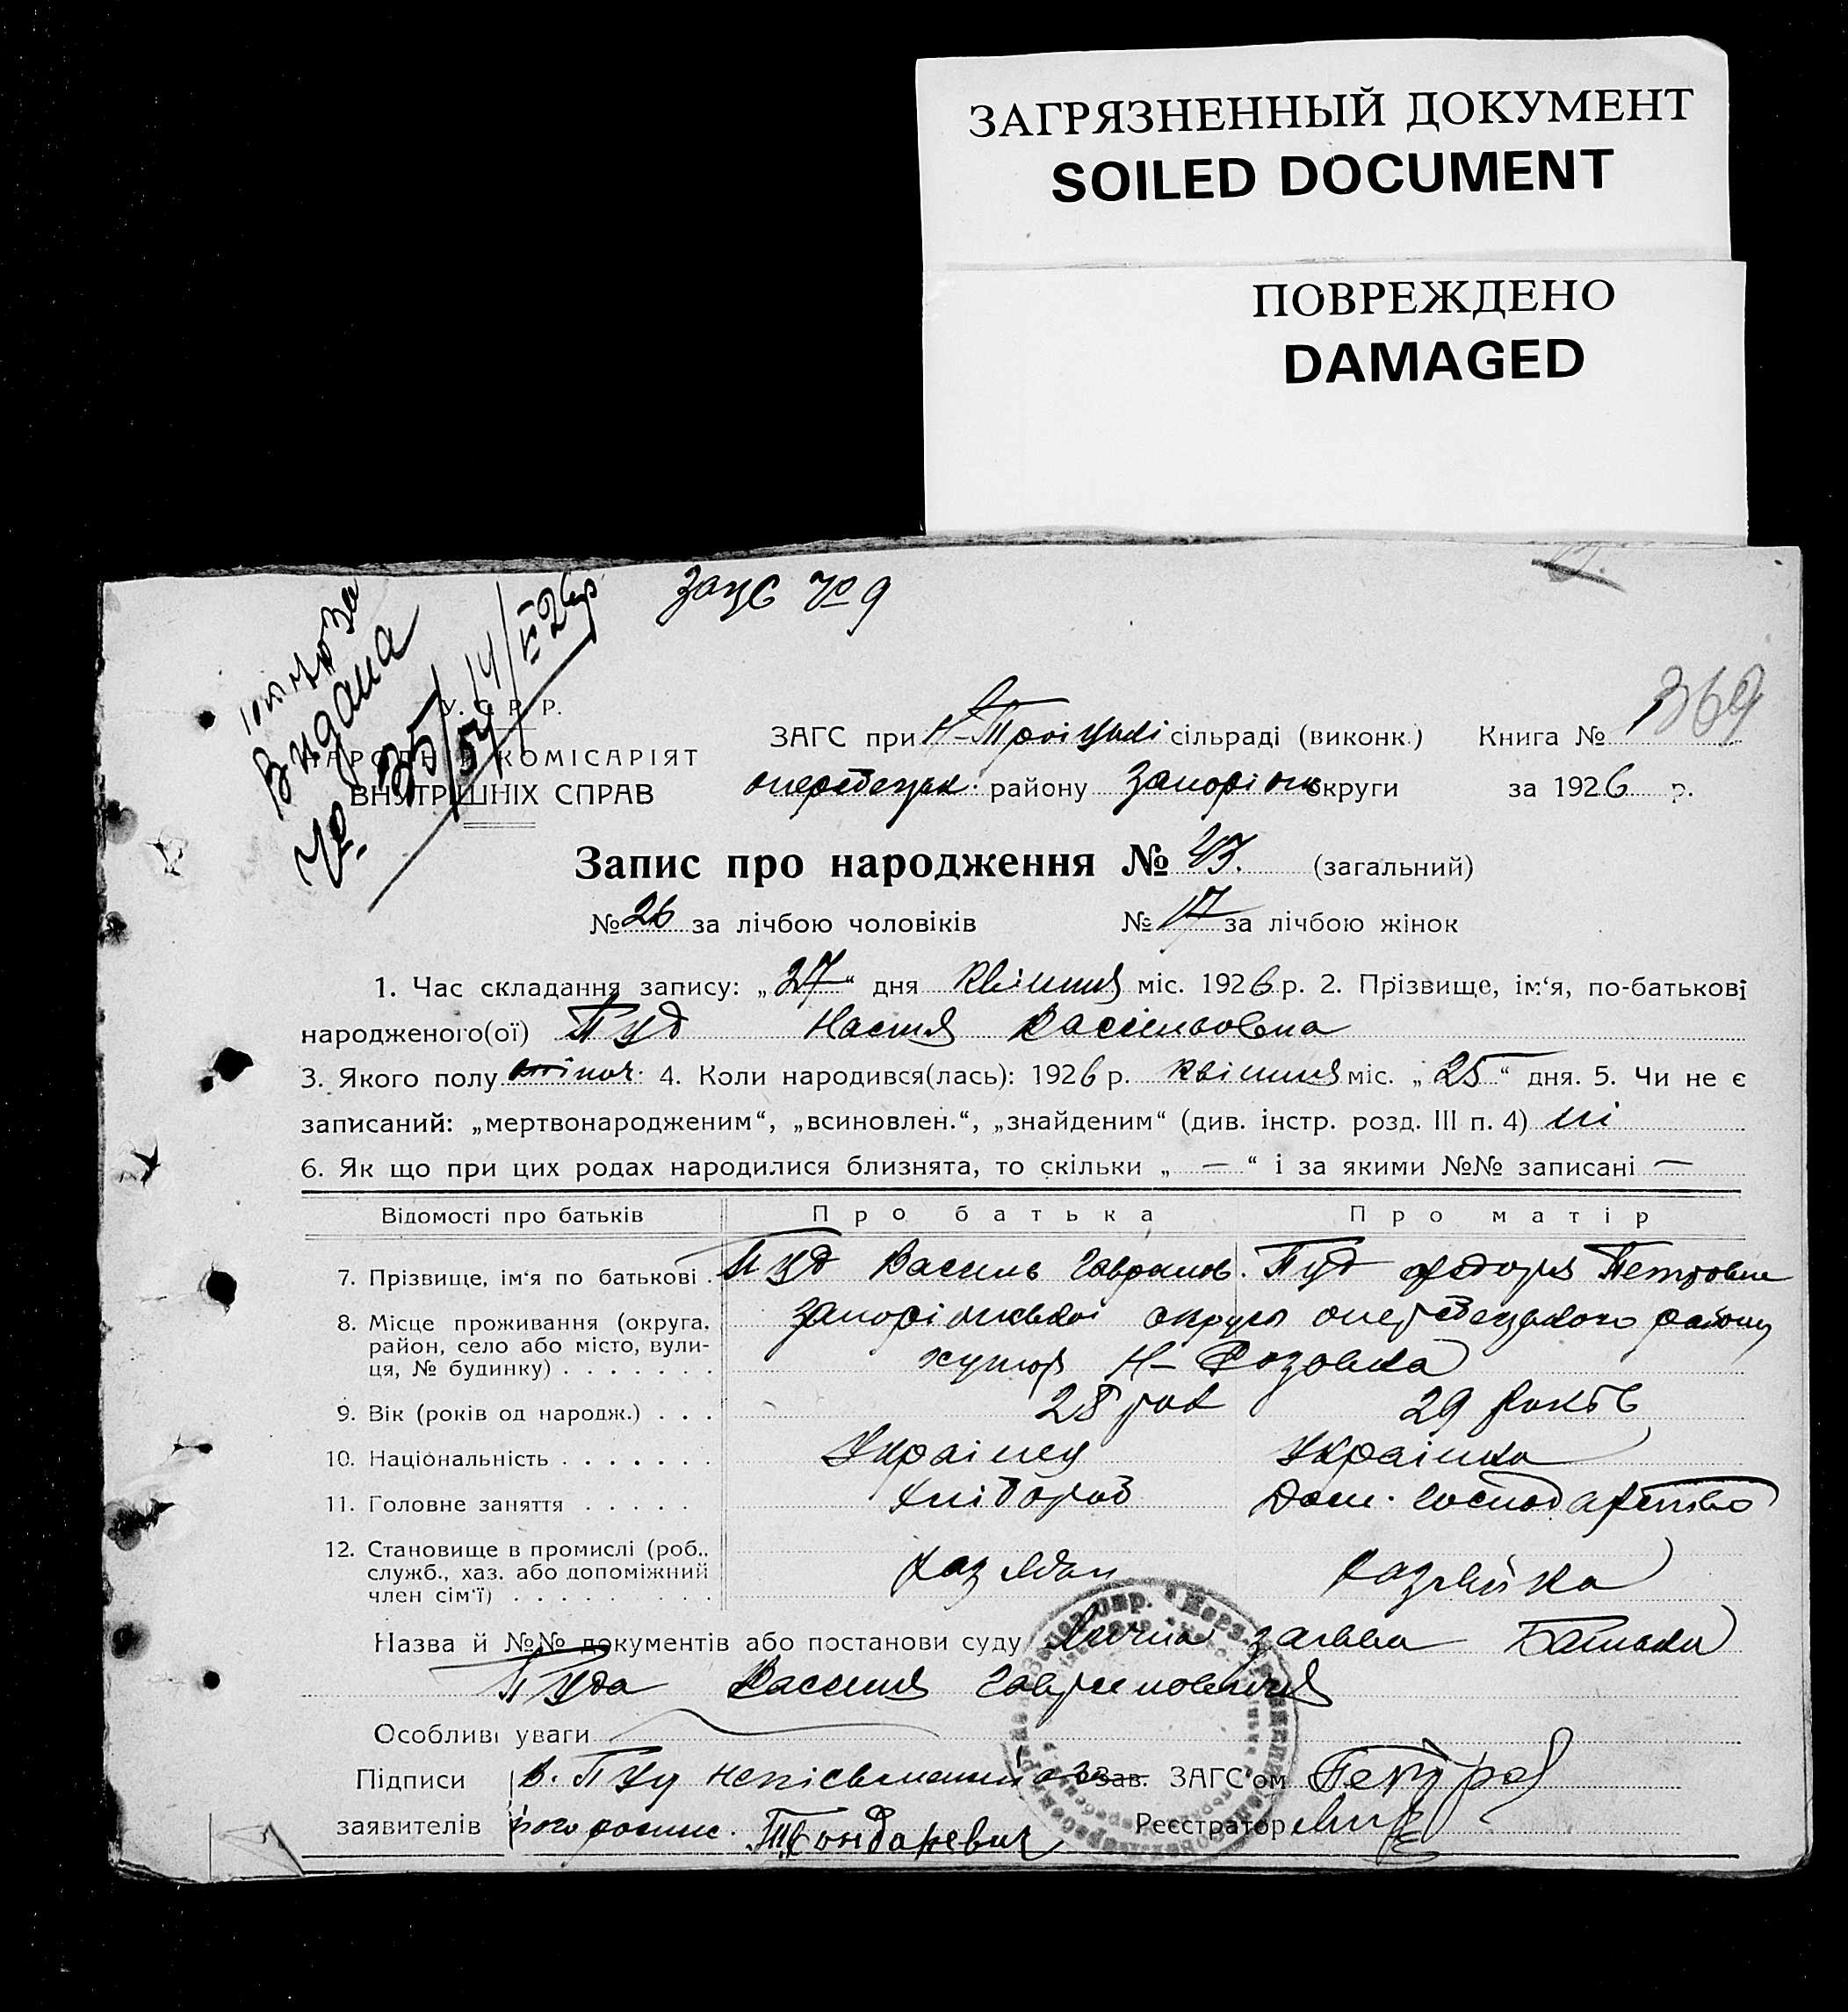 ЗАГРЯЗНЕННЫЙ ДОКУМЕНТ
SOILED DOCUMENT
ПОВРЕЖДЕНО
DAMAGED
ЗАГС № 9
Видана
№ 35/54 14/VI 26 р
369
У. С. Р. Р.
НАРОДН КОМІСАРІЯТ
ВНУТРІШНІХ СПРАВ
ЗАГС при Н-Троіцькі сільраді (виконк.) Книга №
району Запоріжк округи за 1926 р.
Запис про народження № 43. (загальний)
№ 26 за лічбою чоловіків № 17 за лічбою жінок
1. Час складання запису: „27“ дня квітня міс. 1926 р. 2. Прізвище, ім‘я, по-батькові
народженого(ої) Пуд Настя Васильовна
3. Якого полу жіноч. 4. Коли народився(лась): 1926 р. квітня міс. „25“ дня. 5. Чи не є
записаний: „мертвонародженим“, „всиновлен.“, „знайденим“ (див. інстр. розд. III п. 4) ні
6. Як що при цих родах народилися близнята, то скільки „ — “ і за якими №№ записані —
Відомості про батьків Про батька Про матір
7. Прізвище, ім‘я по батькові . Пуд Василь Гаврилов. Пуд Федора Петровна
8. Місце проживання (округа, район, село або місто, вулиця, № будинку) . . . . . . . Запоріжської округи району
хутор Н-Розовка
9. Вік (років од народж.) . . . 28 рок 29 років
10. Національність . . . . . . . Українец Українка
11. Головне заняття . . . . . Хлібороб Дом. господарство
12. Становище в промислі (роб., служб., хаз. або допоміжний член сім‘ї) . . . . . . . . . Хазяїн Хазяйка
Назва й №№ документів або постанови суду Лична заява Батька
Пуда Василя Гавриловича
Особливі уваги
Підписи В. Пуд неписьменний за Зав. ЗАГС‘ом Петров
заявителів його росписс. Бондаревич Реєстратор